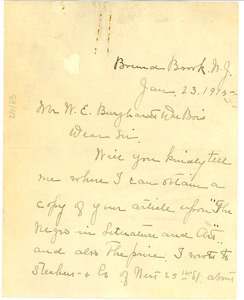 Bound Brook, N.J.
Jan. 23. 1915
Mr W. E. Burghardt DuBois
Dear Sir.
Will you kindly tell
me where I can obtain a
copy of your article upon "The
Negro in Literature and Art",
and also the price. I wrote to
& Co of West 25th St. about